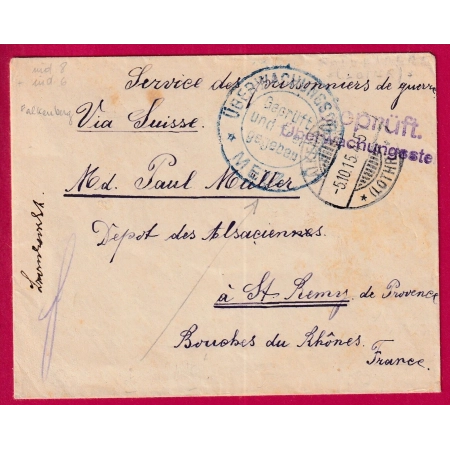 Falkenberg
Service des prisonniers de guerre
Via Suisse.
ÜBERWACHUNGS
Geprüft
und
gegeben
* METZ
Geprüft.
Überwachungsste
-5.10.15
* (LOTHR
Md. Paul Muller
Dépot des Alsaciennes.
à St Remy de Provence
Bouches du Rhônes.
France.